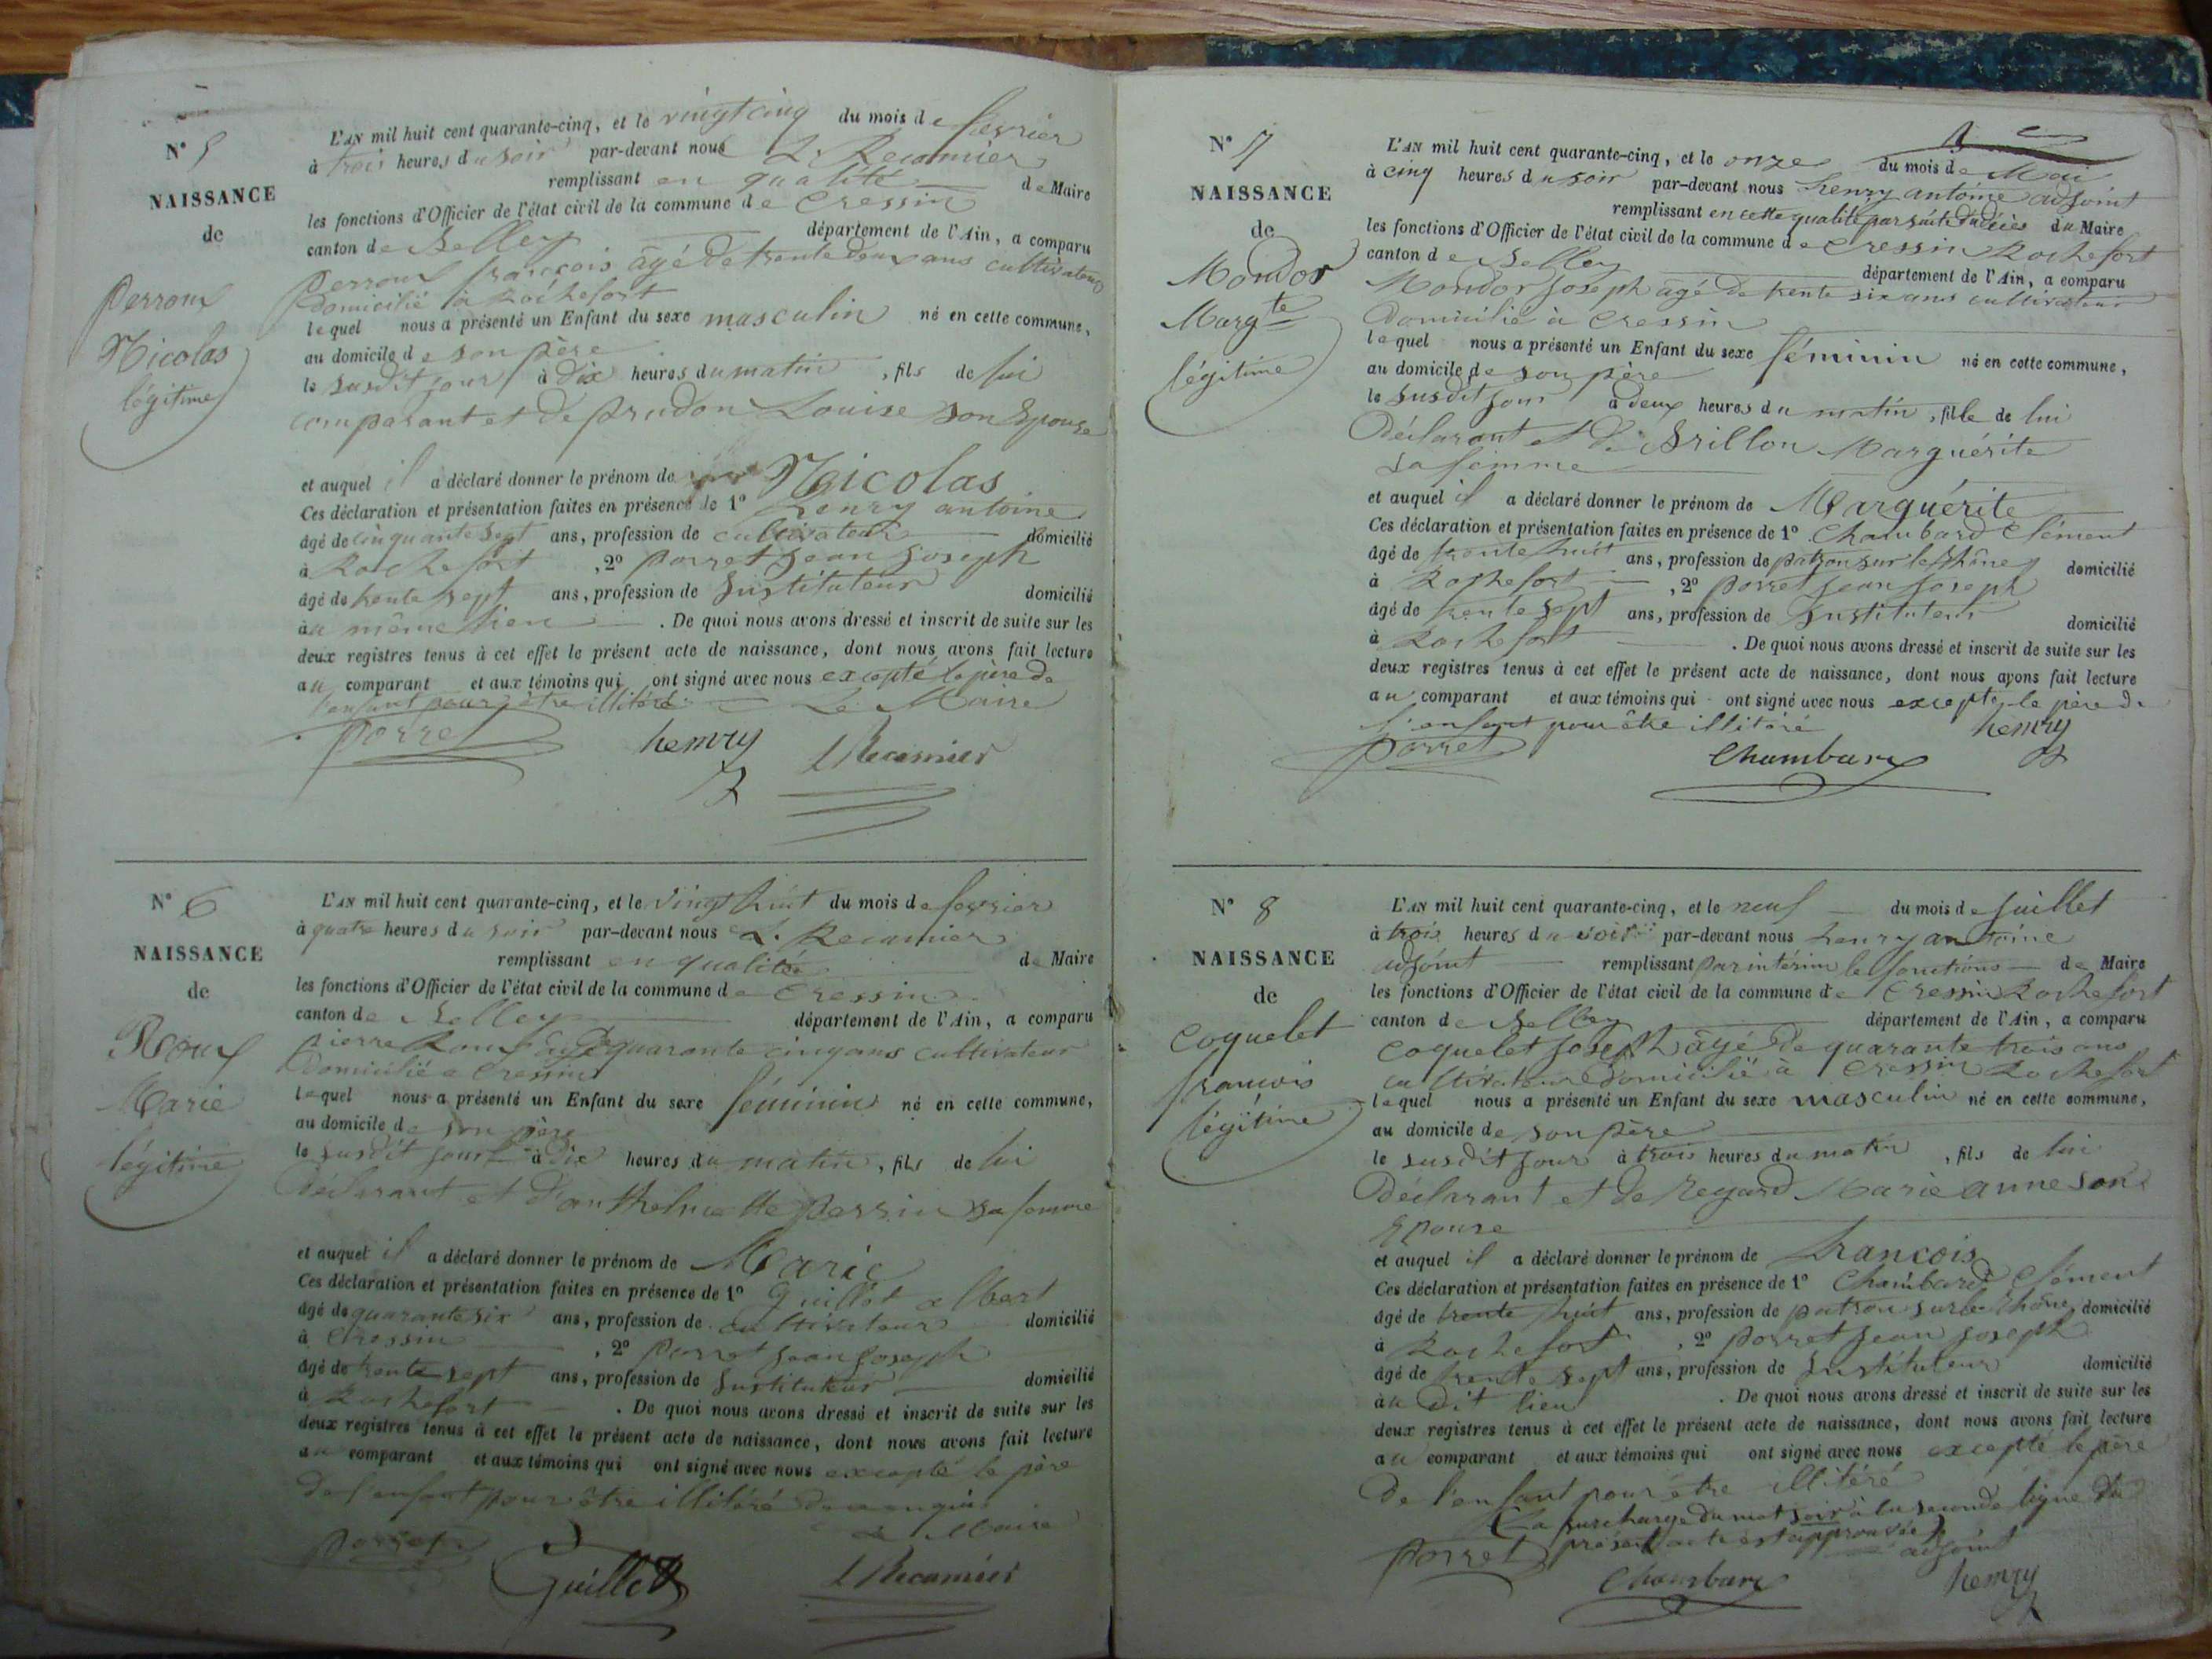 N° 5
NAISSANCE
de
Perroux
Nicolas
légitime
L'AN mil huit cent quarante-cinq, et le vingt cinq du mois de fevrier
à trois heures du soir par-devant nous L. Recamier
remplissant en qualité de Maire
les fonctions d'Officier de l'état civil de la commune de Cressin
canton de Belley département de l'Ain, a comparu
Perroux françois âgé de trente deux ans cultivateur
domicilié à Rochefort
lequel nous a présenté un Enfant du sexe masculin né en cette commune,
au domicile de son père
le susdit jour à dix heures du matin, fils de lui
comparant et de Prudon Louise son Epouse
et auquel il a déclaré donner le prénom de Nicolas
Ces déclaration et présentation faites en présence de 1° henry antoine
âgé de cinquante sept ans, profession de cultivateur domicilié
à Rochefort, 2° Porret Jean Joseph
âgé de trente sept ans, profession de Instituteur domicilié
au même lieu. De quoi nous avons dressé et inscrit de suite sur les
deux registres tenus à cet effet le présent acte de naissance, dont nous avons fait lecture
au comparant et aux témoins qui ont signé avec nous excepté le père de
l'enfant pour être illitéré Le Maire
Porret henry L Recamier
N° 6
NAISSANCE
de
Roux
Marie
légitime
L'AN mil huit cent quarante-cinq, et le vingt huit du mois de fevrier
à quatre heures du soir par-devant nous L. Recamier
remplissant en qualité de Maire
les fonctions d'Officier de l'état civil de la commune de Cressin
canton de Belley département de l'Ain, a comparu
Pierre Roux âgé de quarante cinq ans cultivateur
domicilié à Cressin
lequel nous a présenté un Enfant du sexe féminin né en cette commune,
au domicile de son père
le susdit jour à dix heures du matin, fils de lui
déclarant et d'anthelmette Perrin sa femme
et auquel il a déclaré donner le prénom de Marie
Ces déclaration et présentation faites en présence de 1° Guillot albert
âgé de quarante six ans, profession de cultivateur domicilié
à Cressin, 2° Porret Jean Joseph
âgé de trente sept ans, profession de Instituteur domicilié
à Rochefort. De quoi nous avons dressé et inscrit de suite sur les
deux registres tenus à cet effet le présent acte de naissance, dont nous avons fait lecture
au comparant et aux témoins qui ont signé avec nous excepté le père
de l'enfant pour être illitéré
Le Maire
Porret Guillot L Recamier
N° 7
NAISSANCE
de
Mondor
Margte
légitime
L'AN mil huit cent quarante-cinq, et le onze du mois de Mai
à cinq heures du soir par-devant nous henry antoine adjoint
remplissant en cette qualité par suite du décès du Maire
les fonctions d'Officier de l'état civil de la commune de Cressin Rochefort
canton de Belley département de l'Ain, a comparu
Mondor Joseph âgé de trente six ans cultivateur
domicilié à Cressin
lequel nous a présenté un Enfant du sexe féminin né en cette commune,
au domicile de son père
le susdit jour à deux heures du matin, fille de lui
déclarant et de Brillon Marguérite
sa femme
et auquel il a déclaré donner le prénom de Marguérite
Ces déclaration et présentation faites en présence de 1° Chambard Clément
âgé de trente huit ans, profession de patron sur le Rhône domicilié
à Rochefort, 2° Porret Jean Joseph
âgé de trente sept ans, profession de Instituteur domicilié
à Rochefort. De quoi nous avons dressé et inscrit de suite sur les
deux registres tenus à cet effet le présent acte de naissance, dont nous avons fait lecture
au comparant et aux témoins qui ont signé avec nous excepté le père de
l'enfant pour être illitéré
Porret Chambard henry
N° 8
NAISSANCE
de
Coquelet
francois
légitime
L'AN mil huit cent quarante-cinq, et le neuf du mois de juillet
à trois heures du soir par-devant nous henry antoine
adjoint remplissant par intérim les fonctions de Maire
les fonctions d'Officier de l'état civil de la commune de Cressin Rochefort
canton de Belley département de l'Ain, a comparu
Coquelet Joseph âgé de quarante trois ans
cultivateur domicilié à Cressin Rochefort
lequel nous a présenté un Enfant du sexe masculin né en cette commune,
au domicile de son père
le susdit jour à trois heures du matin, fils de lui
déclarant et de Regard Marie anne son
Epouse
et auquel il a déclaré donner le prénom de francois
Ces déclaration et présentation faites en présence de 1° Chambard Clément
âgé de trente huit ans, profession de patron sur le Rhône domicilié
à Rochefort, 2° Porret Jean Joseph
âgé de trente sept ans, profession de Instituteur domicilié
au dit lieu. De quoi nous avons dressé et inscrit de suite sur les
deux registres tenus à cet effet le présent acte de naissance, dont nous avons fait lecture
au comparant et aux témoins qui ont signé avec nous excepté le père
de l'enfant pour être illitéré
La surcharge du mot soir à la seconde ligne du
présent acte est approuvée
adjoint
Porret Chambard henry